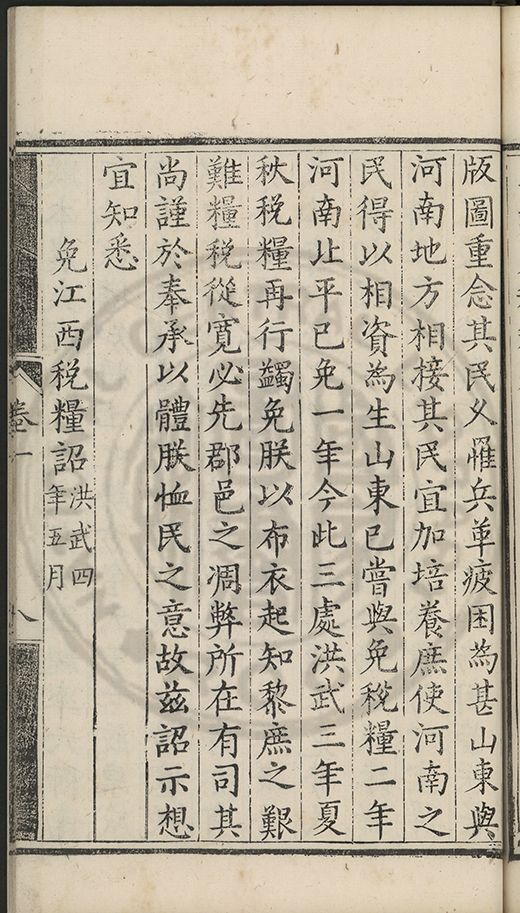 版圖重念其民久罹兵革疲困為甚山東與
河南地方相接其民宜加培養庶使河南之
民得以相資為生山東已嘗與免稅糧二年
河南北平已免一年今此三處洪武三年夏
秋稅糧再行蠲免朕以布衣起知黎庶之艱
難糧稅從寬必先郡邑之凋弊所在有司其
尚謹於奉承以體朕恤民之意故玆詔示想
宜知悉
免江西稅糧詔洪武四
年五月
卷一
八